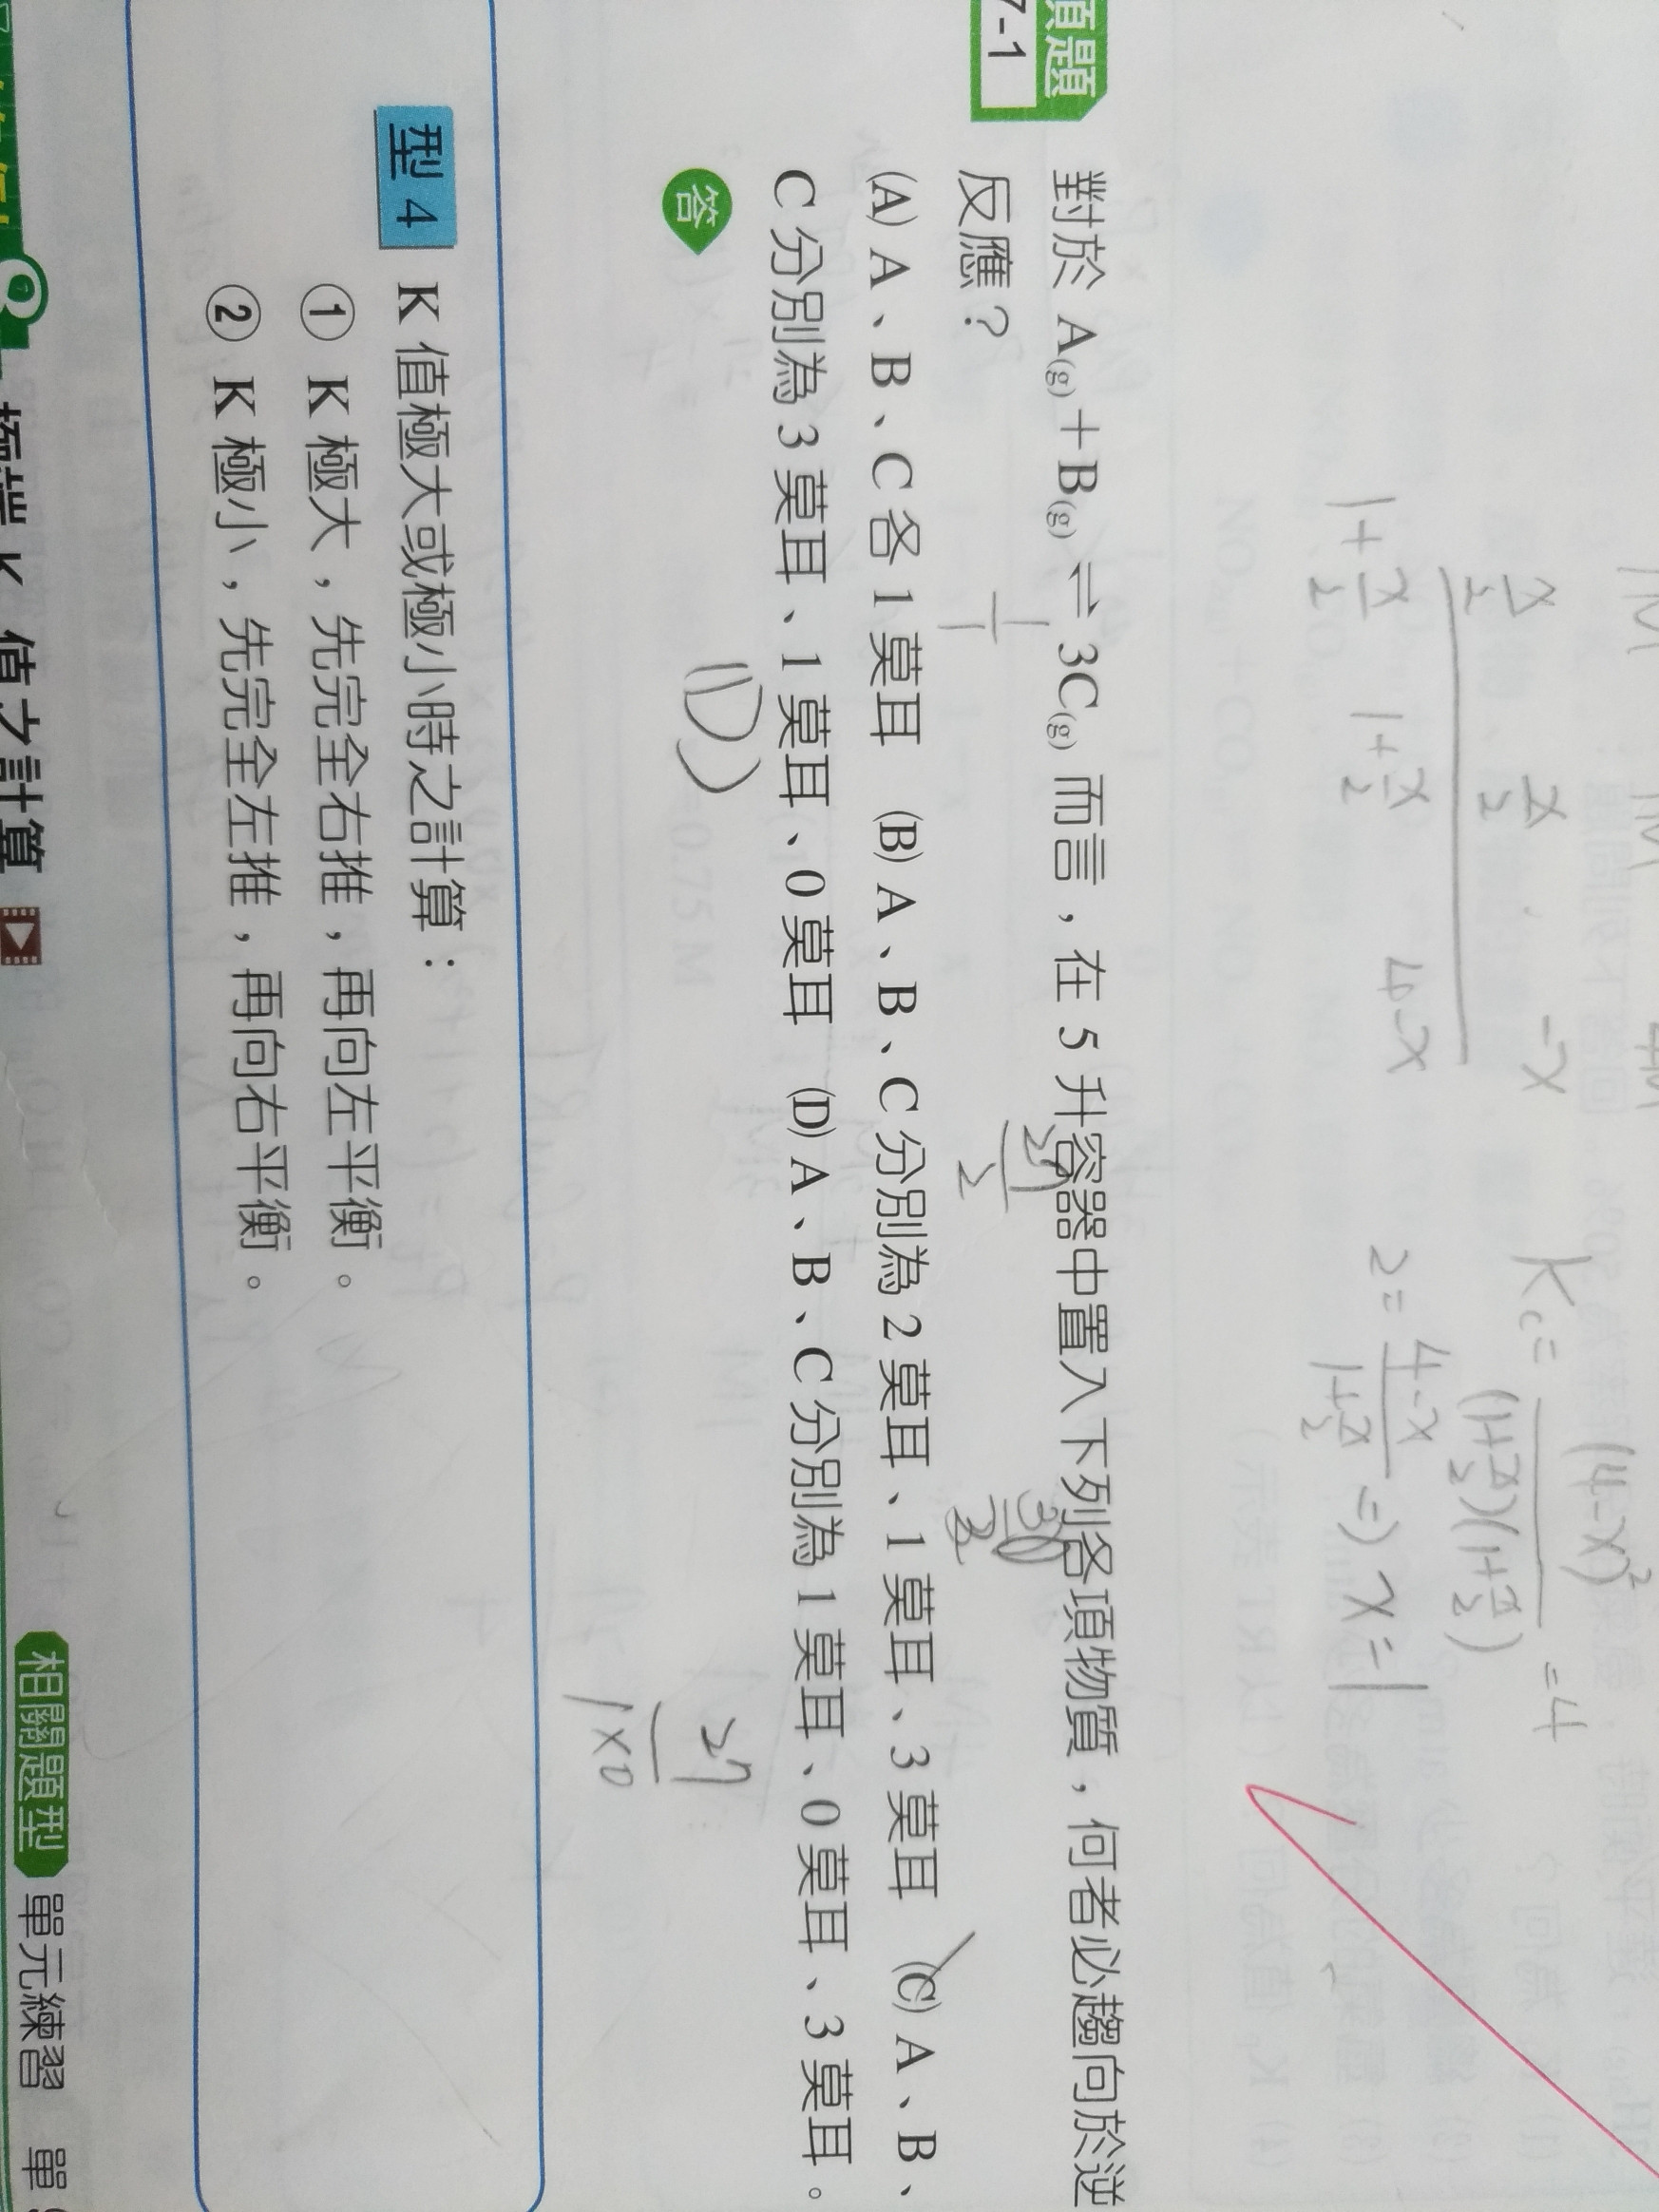 1M 1M 4M
x/2 x/2 -x
1+x/2 1+x/2 4-x
Kc = (4-x)²/(1+x/2)(1+x/2) = 4
2 = 4-x/1+x/2 => x=1
類題
7-1
對於 A(g)+B(g) ⇌ 3C(g) 而言，在 5 升容器中置入下列各項物質，何者必趨向於逆
反應？
1/1 27/2
(A) A、B、C 各 1 莫耳 (B) A、B、C 分別為 2 莫耳、1 莫耳、3 莫耳 (C) A、B、
C 分別為 3 莫耳、1 莫耳、0 莫耳 (D) A、B、C 分別為 1 莫耳、0 莫耳、3 莫耳。
答 (D) 27/1×0
型 4 K 值極大或極小時之計算：
① K 極大，先完全右推，再向左平衡。
② K 極小，先完全左推，再向右平衡。
極端 K 值之計算 相關題型 單元練習 單